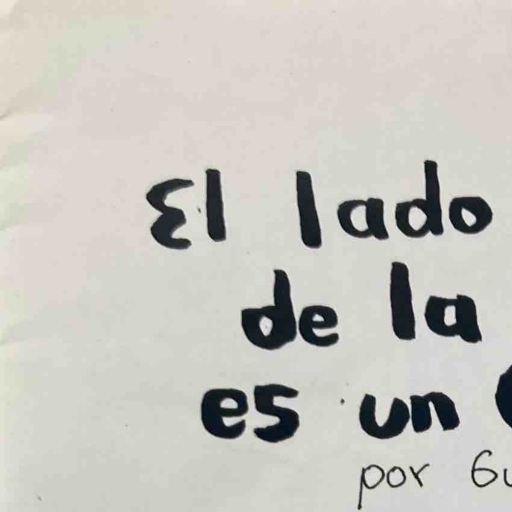 El lado
de la
es un
por